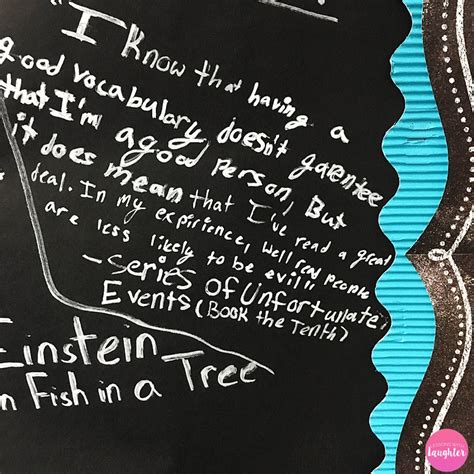 "I Know that having a
good vocabulary doesn't garentee
that I'm a good Person, But
it does mean that I've read a great
deal. In my expirience, well read people
are less likely to be evil"
—Series of Unfortunate
Events (Book the Tenth)
Einstein
n Fish in a Tree
laughter